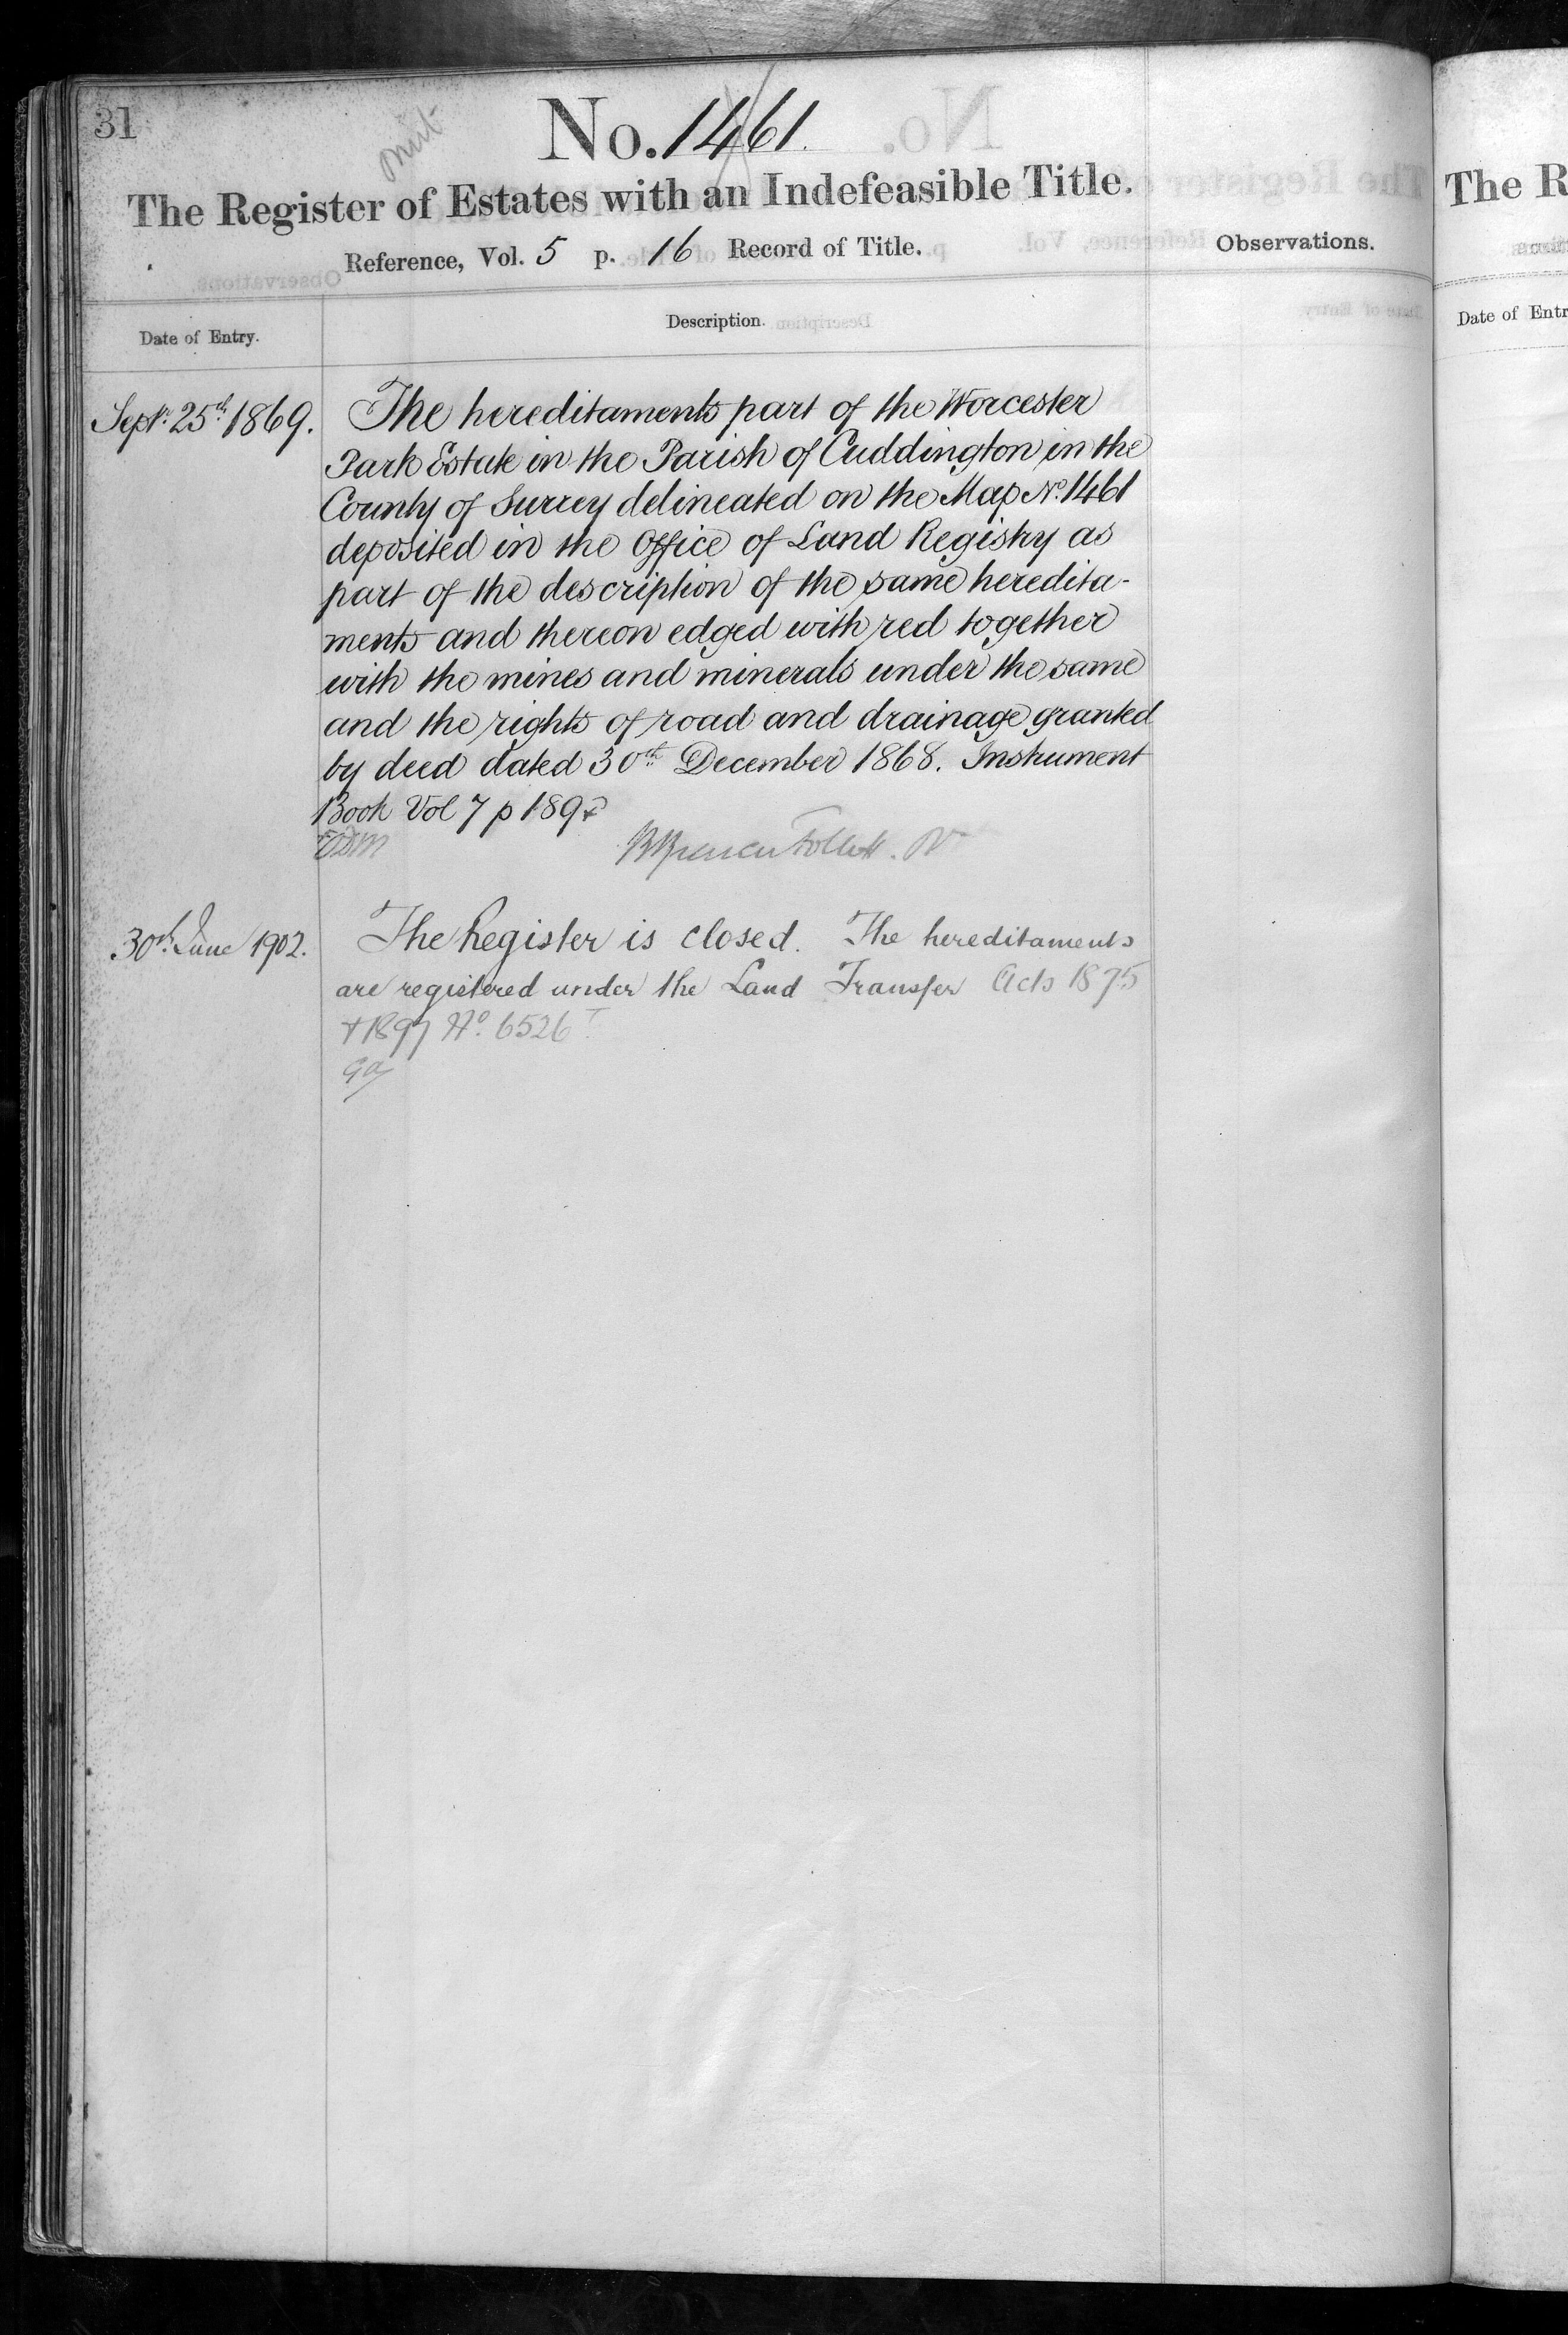 31
No. 1461.
The Register of Estates with an Indefeasible Title.
Reference, Vol. 5 p. 16 Record of Title.
Observations.
Date of Entry.
Description.
Septr. 25th 1869.
The hereditaments part of the Worcester
Park Estate in the Parish of Cuddington in the
County of Surrey delineated on the Map No. 1461
deposited in the Office of Land Registry as
part of the description of the same heredita-
ments and thereon edged with red together
with the mines and minerals under the same
and the rights of road and drainage granted
by deed dated 30th December 1868. Instrument
Book Vol 7 p 189
Follett.
30th June 1902.
The Register is closed. The hereditaments
are registered under the Land Transfer Acts 1875
+ 1897 No. 6526
The R
Date of Entr